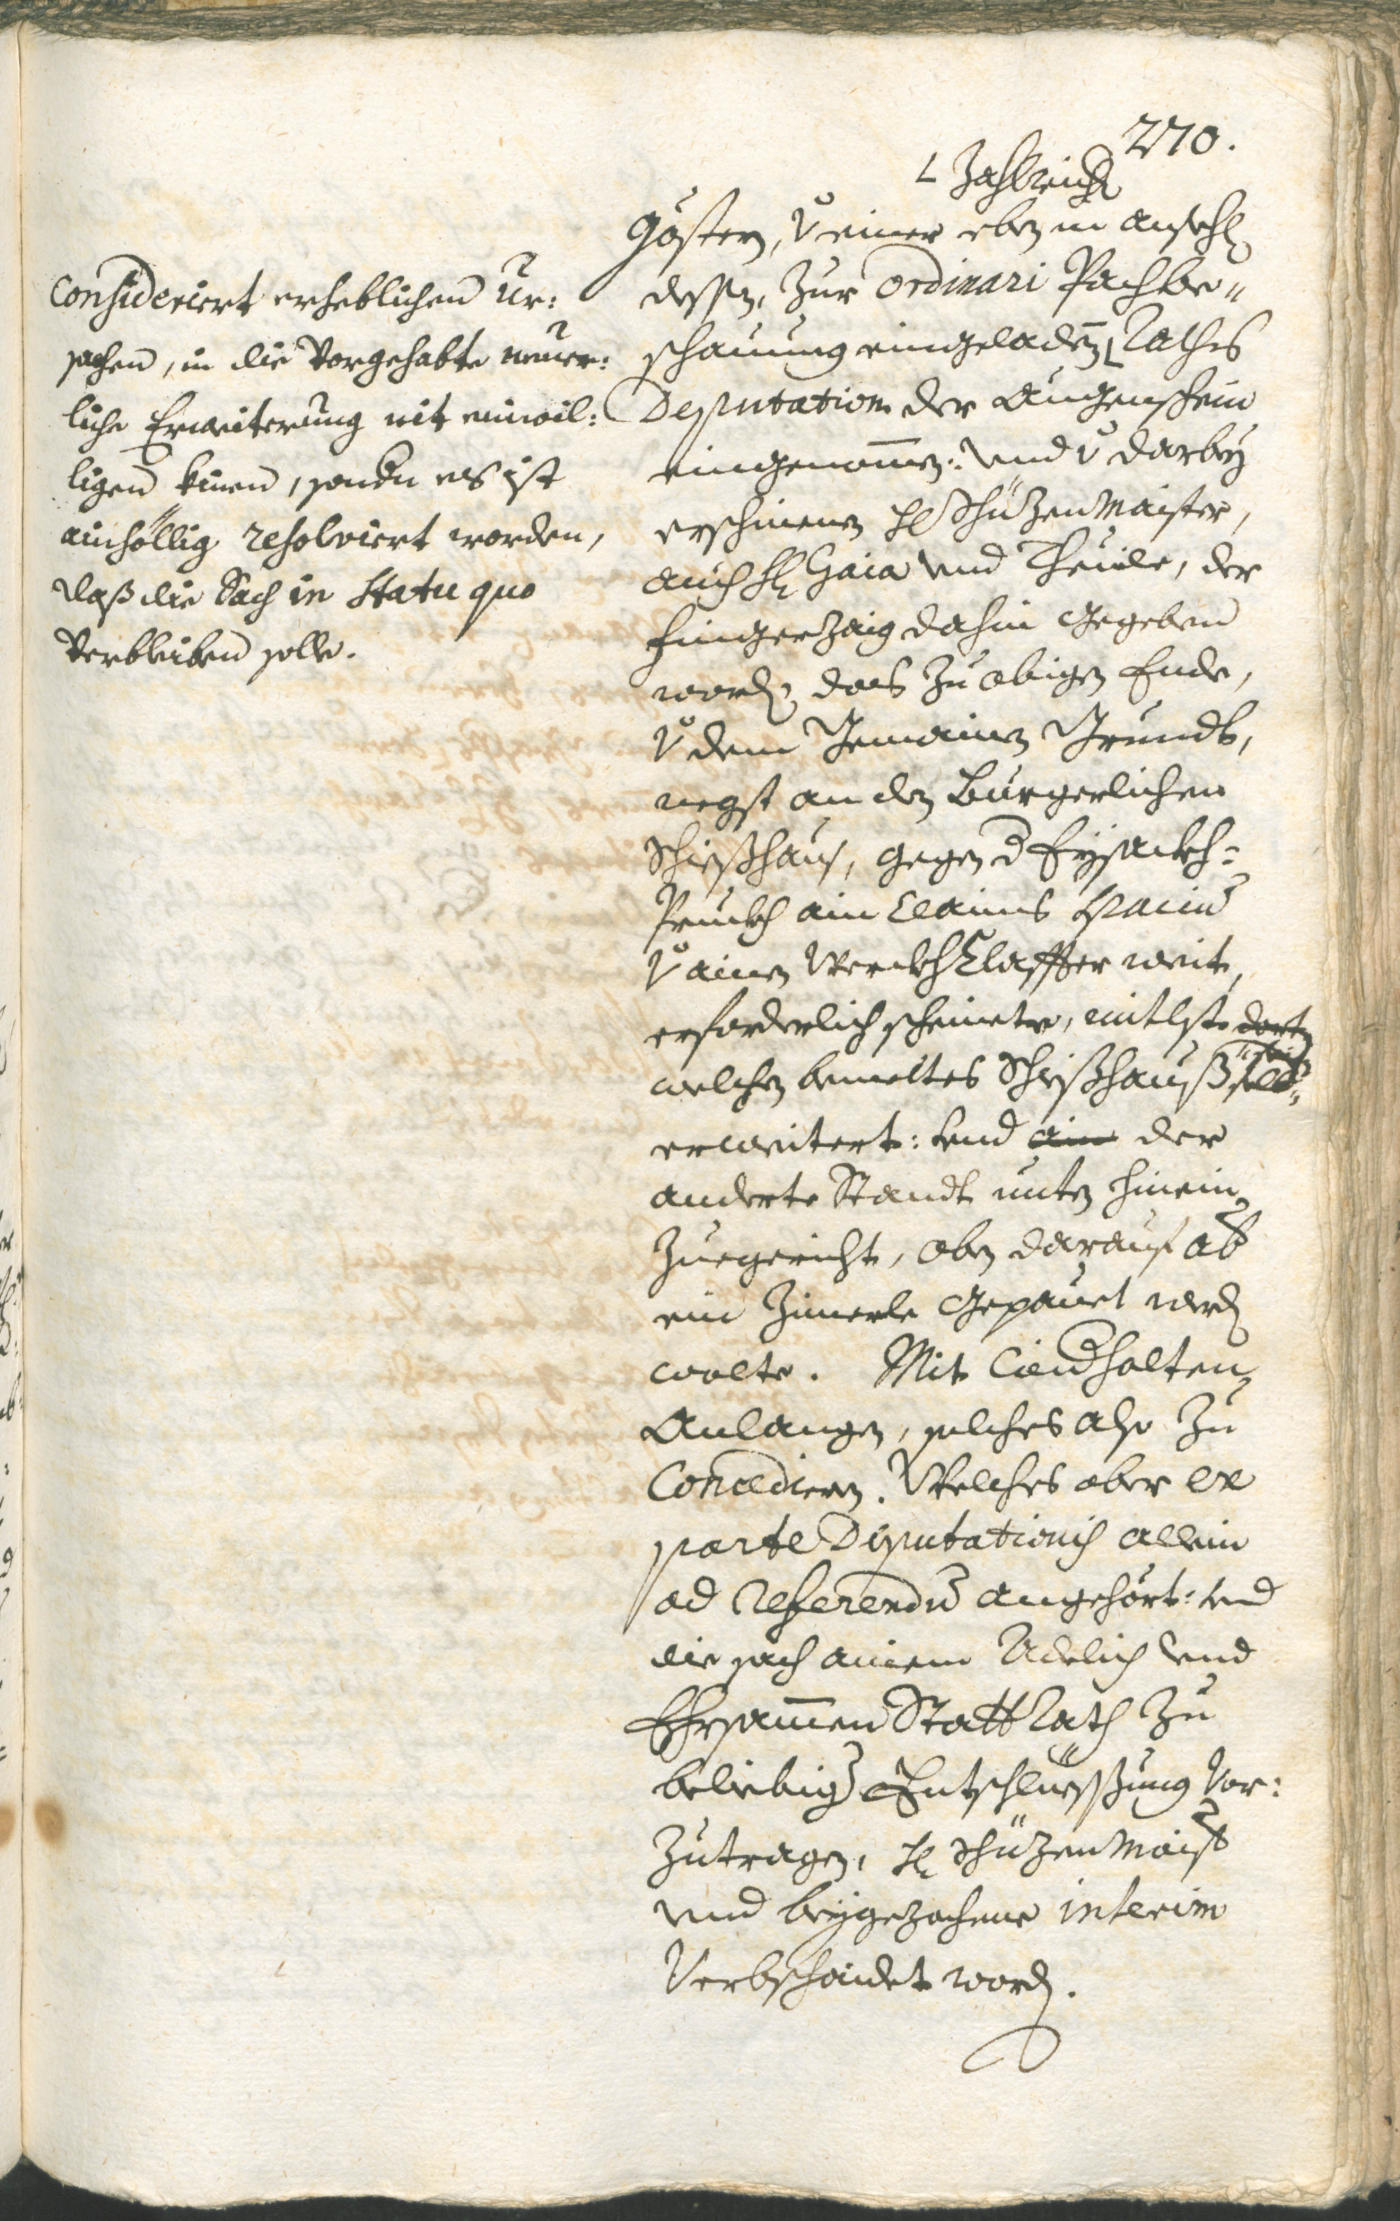 270.
consideriert erheblichen Ur:
sachen, in die vorgehabte neuer:
liche Erweiterung nit einwil:
ligen künen, sondern es ist
ainhöllig resolviert worden,
daß die Sach in Statu quo
verbleiben solle.
Zahlreich
gösten, v einer eben in ansech
dessen, zur ordinari Pachbe"
schauung eingeladen Raths
Deputation der Augenschein
eingenomen: und v darbey
erschinenen H Schüzenmaister,
auch H Gaia und , der
Fingerzaig dahin gegeben
word, das zu obigen Ende,
v dem Gemainen Grundt,
negst an den Burgerlichen
Schießhaus, gegen d Eysackh=
Prukh ain claines spacium
v ainen Werckhclaffter weit,
erforderlich scheinete, mitlst dort
welchen bemeltes Schießhauß
erweitert: und ain der
anderte Standt unten hinein
zuegericht, oben darauf ab
ein Zimerle gepauet werd
wolte. Mit
Anlangen, solches also zu
Concedieren. Welches aber ex
parte Deputationis allein
ad referendum angehört: und
die sach ainem Adelich und
Ehrsammen Statt Rath zu
beliebiger Entschlüessßung vor:
zutragen, H Schüzenmaister
und beygezochene interim
verbschaidet word.